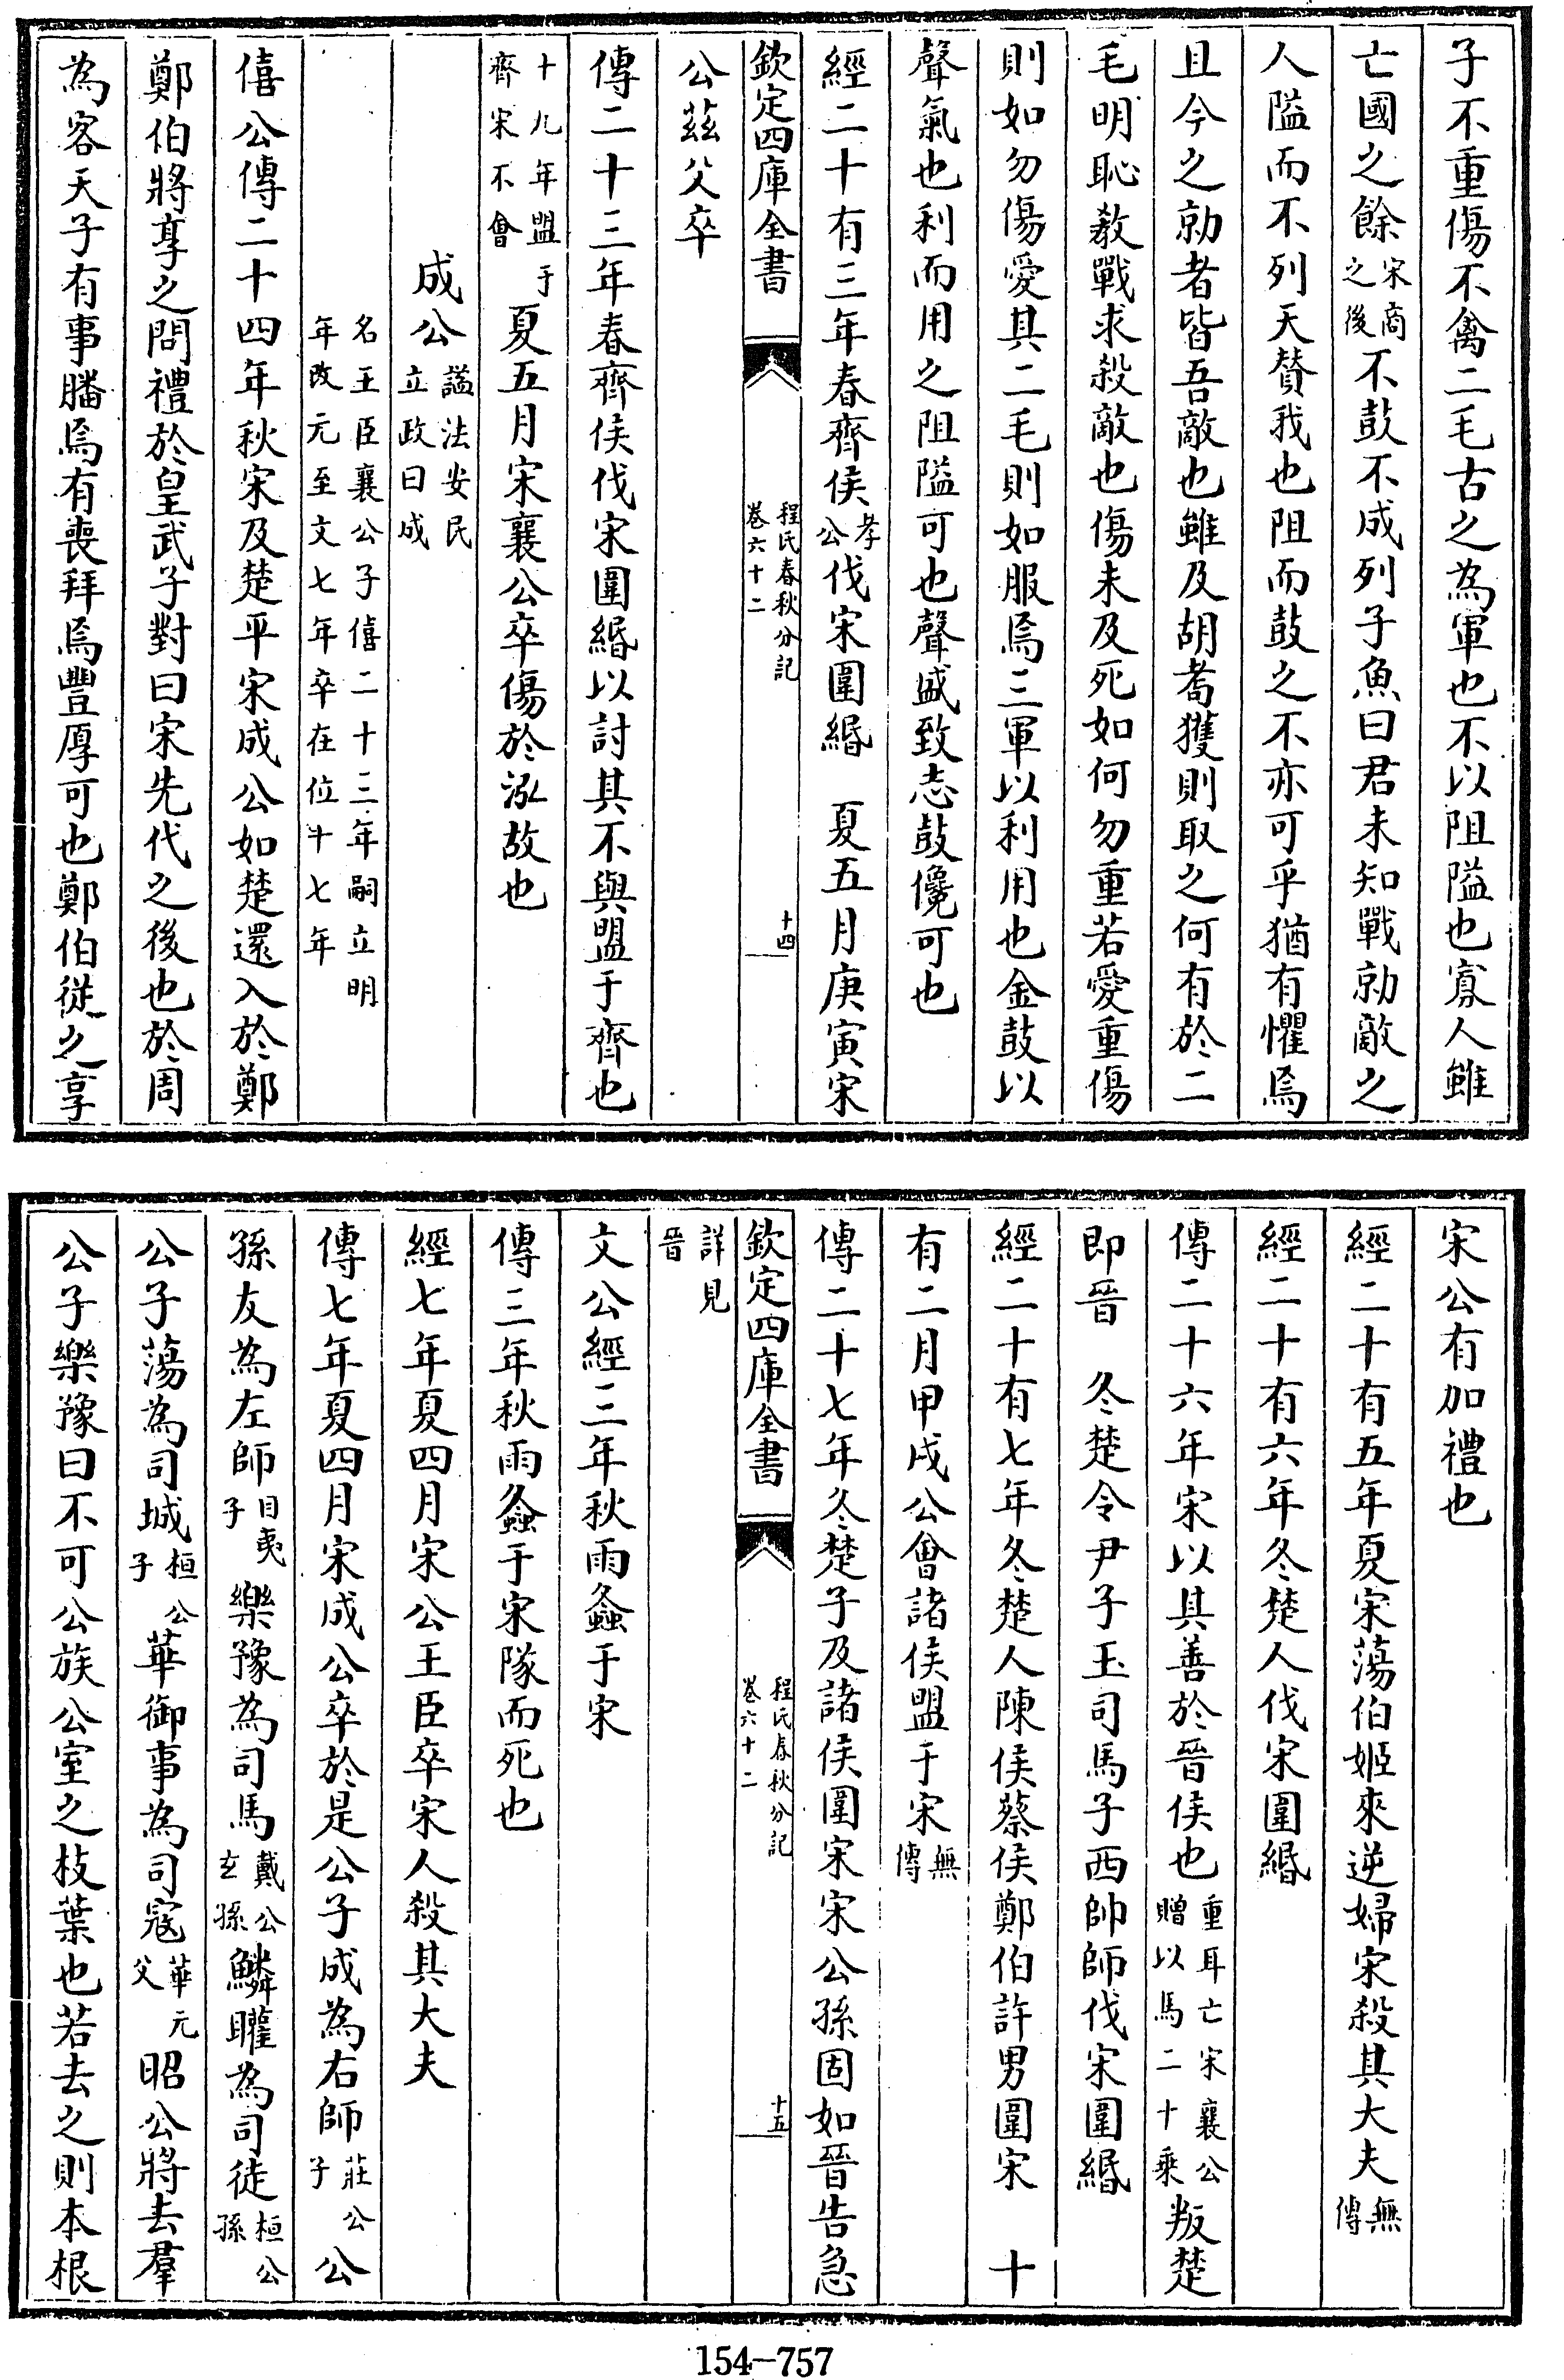 子不重傷不禽二毛古之為軍也不以阻隘也寡人雖
亡國之餘宋商之後不鼓不成列子魚曰君未知戰勍敵之
人隘而不列天賛我也阻而鼓之不亦可乎猶有懼焉
且今之勍者皆吾敵也雖及胡耉獲則取之何有於二
毛明恥教戰求殺敵也傷未及死如何勿重若愛重傷
則如勿傷愛其二毛則如服焉三軍以利用也金鼓以
聲氣也利而用之阻隘可也聲盛致志鼓儳可也
經二十有三年春齊侯孝公伐宋圍緡　夏五月庚寅宋
欽定四庫全書　程氏春秋分記卷六十二　十四
公茲父卒
傳二十三年春齊侯伐宋圍緡以討其不與盟于齊也
十九年盟于齊宋不會夏五月宋襄公卒傷於泓故也
成公諡法安民立政曰成
名王臣襄公子僖二十三年嗣立明年改元至文七年卒在位十七年
僖公傳二十四年秋宋及楚平宋成公如楚還入於鄭
鄭伯將享之問禮於皇武子對曰宋先代之後也於周
為客天子有事膰焉有喪拜焉豐厚可也鄭伯從之享
宋公有加禮也
經二十有五年夏宋蕩伯姬來逆婦宋殺其大夫無傳
經二十有六年冬楚人伐宋圍緡
傳二十六年宋以其善於晉侯也重耳亡宋襄公贈以馬二十乗叛楚
即晉　冬楚令尹子玉司馬子西帥師伐宋圍緡
經二十有七年冬楚人陳侯蔡侯鄭伯許男圍宋　十
有二月甲戌公會諸侯盟于宋無傳
傳二十七年冬楚子及諸侯圍宋宋公孫固如晉告急
欽定四庫全書　程氏春秋分記卷六十二　十五
詳見晉
文公經三年秋雨螽于宋
傳三年秋雨螽于宋隊而死也
經七年夏四月宋公王臣卒宋人殺其大夫
傳七年夏四月宋成公卒於是公子成為右師莊公子公
孫友為左師目夷子樂豫為司馬戴公玄孫鱗矔為司徒桓公孫
公子蕩為司城桓公子華御事為司寇華元父昭公將去羣
公子樂豫曰不可公族公室之枝葉也若去之則本根
154—757